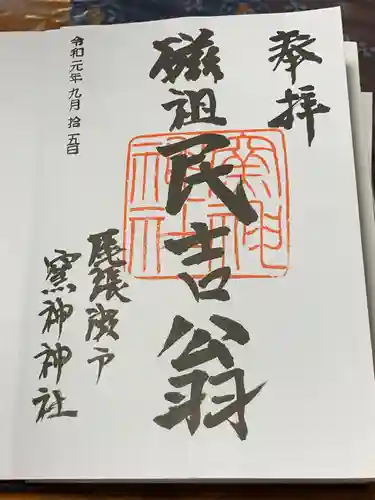 奉拝
磁祖民吉翁
窯神
神社
尾張瀬戸
窯神神社
令和元年九月拾五日